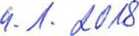 4. 1. 2018